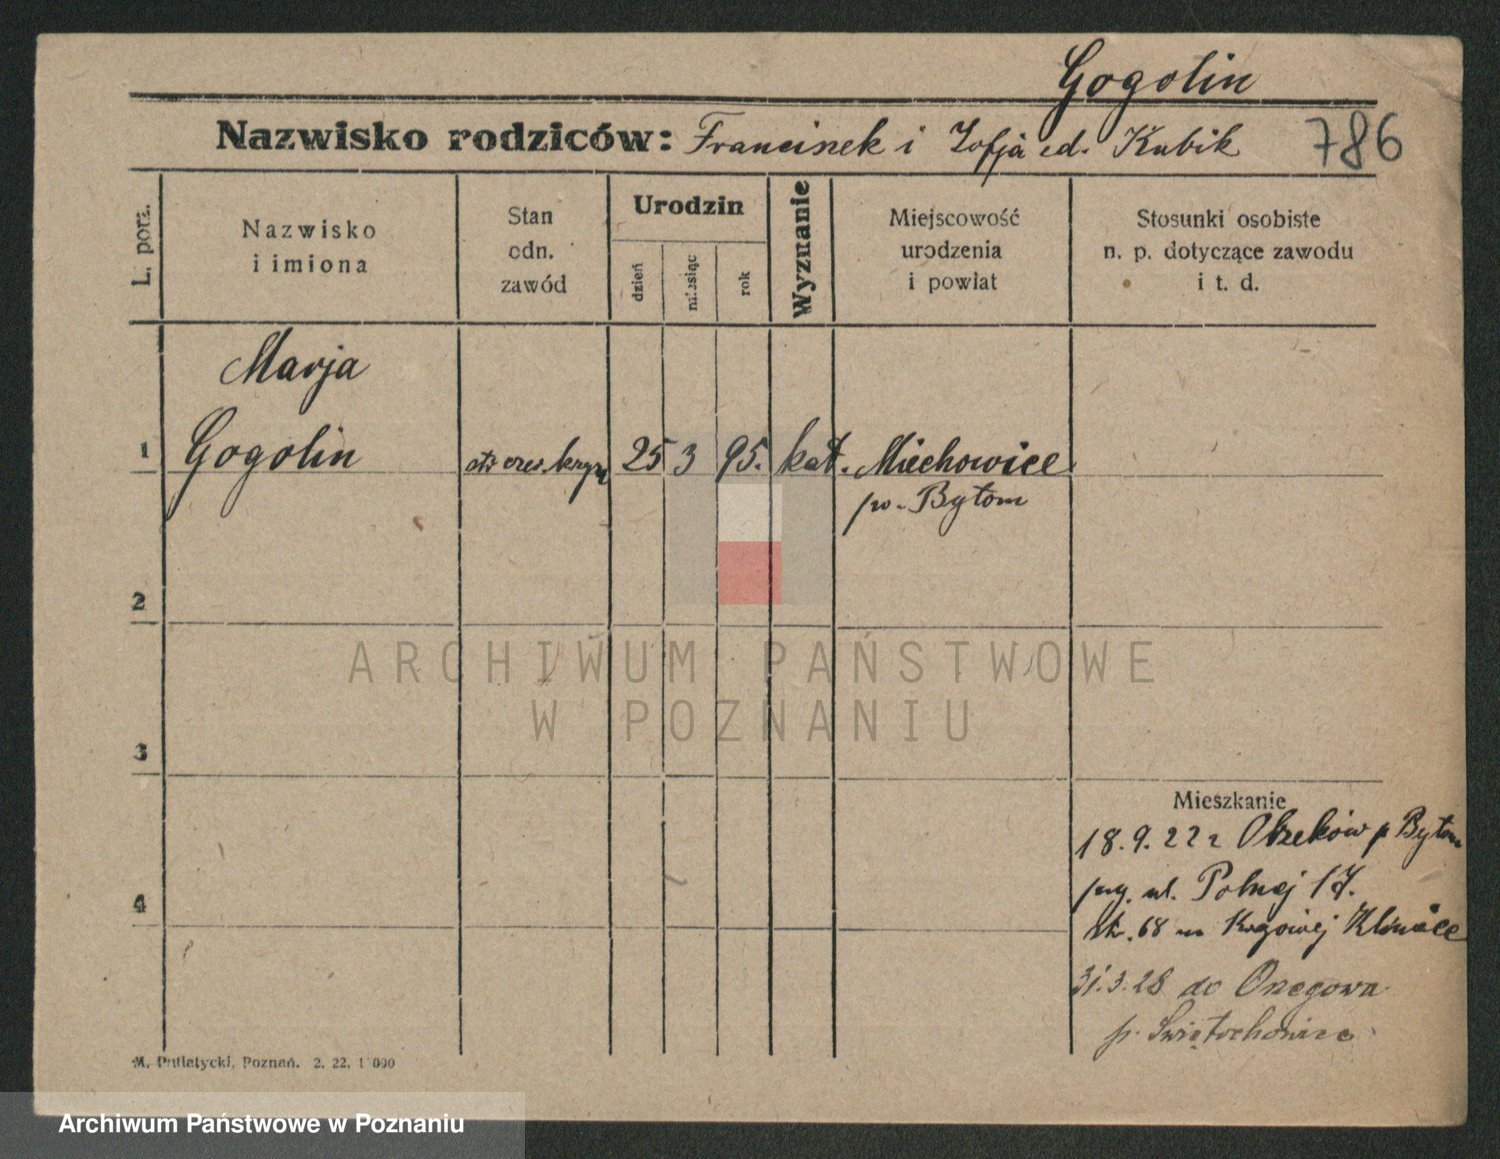 Gogolin
Nazwisko rodziców: Franciszek i Zofja zd. Kubik 786
L. porz.
Nazwisko
i imiona
Stan
cdn.
zawód
Urodzin
dzień
miesiąc
rok
Wyznanie
Miejscowość
urodzenia
i powiat
Stosunki osobiste
n. p. dotyczące zawodu
i t. d.
Marja
1 Gogolin 25 3 95. kat. Miechowice
po. Bytom
2
ARCHIWUM PAŃSTWOWE
W POZNANIU
3
Mieszkanie
18.9.22 r p Bytom
ul. Polnej 17.
4
68
31.3.28 do Orzegowa
p. Świętochowice
M. Putiatycki, Poznań. 2. 22. 1 000
Archiwum Państwowe w Poznaniu